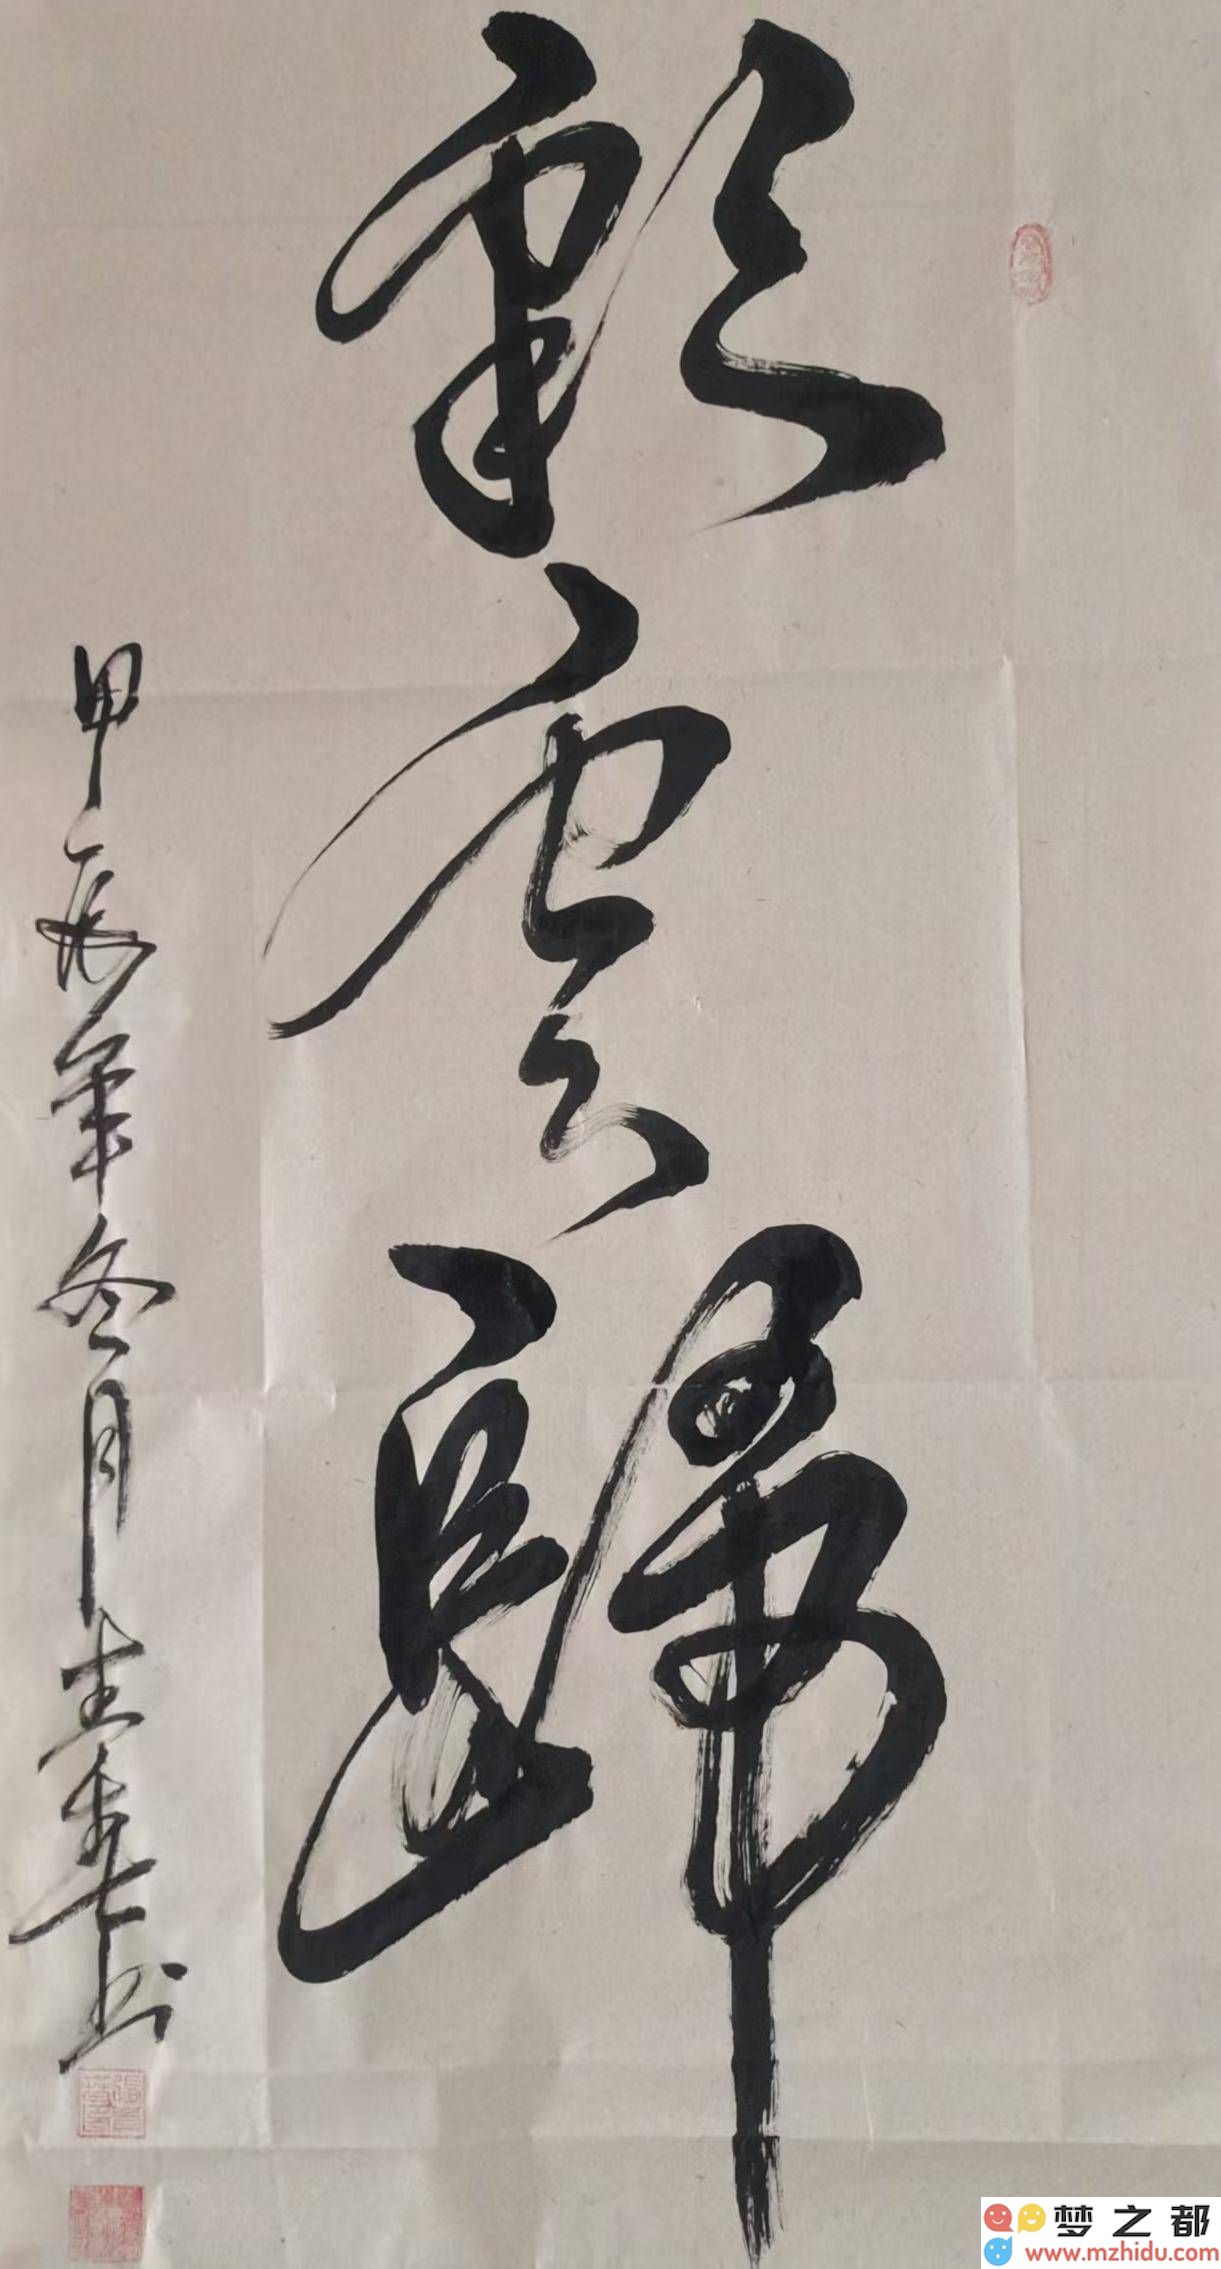 彩雲歸
甲辰年冬月
书
梦之都
www.mzhidu.com